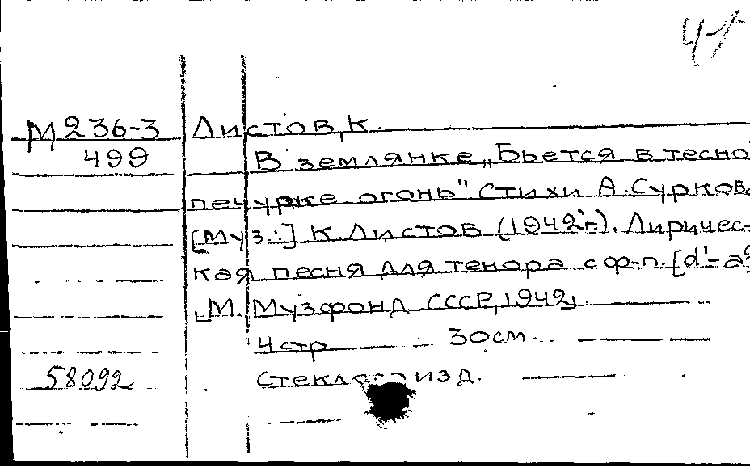 М236-3 Листов, К.
499 В землянке „Бьется в тесно
печурке огонь" Стихи А. Суркова
[Муз.:] К. Листов (1942г.). Лиричес-
кая песня для тенора с ф-п. [d'-a²
[М. Музфонд СССР, 1942]
4 стр 30 см.
58092 изд.